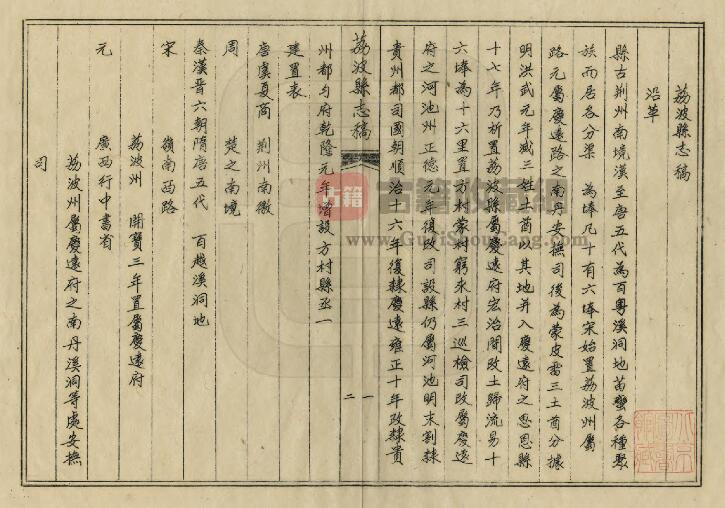 荔波縣志稿
沿革
縣古荆州南境漢至唐五代為百粤溪洞地苗蠻各種聚
族而居各分渠 為埲凡十有六埲宋始置荔波州屬
路元屬慶遠路之南丹安撫司後為蒙皮雷三土酋分據
明洪武元年滅三姓土酋以其地并入慶遠府之思恩縣
十七年乃析置荔波縣屬慶遠府宏治間改土歸流易十
六埲為十六里置方村蒙村窮來村三巡檢司改屬慶遠
府之河池州正德元年復改司設縣仍屬河池明末割隸
貴州都司國朝順治十六年復隸慶遠雍正十年改隸貴
荔波縣志稿
一
二
州都匀府乾隆元年增設方村縣丞一
建置表
唐虞夏商 荆州南徼
周 楚之南境
秦漢晉六朝隋唐五代 百越溪洞地
宋 嶺南西路
荔波州 開寶三年置屬慶遠府
元 廣西行中書省
荔波州屬慶遠府之南丹溪洞等處安撫
司
古籍
古籍收藏網
www.GuJiShouCang.com